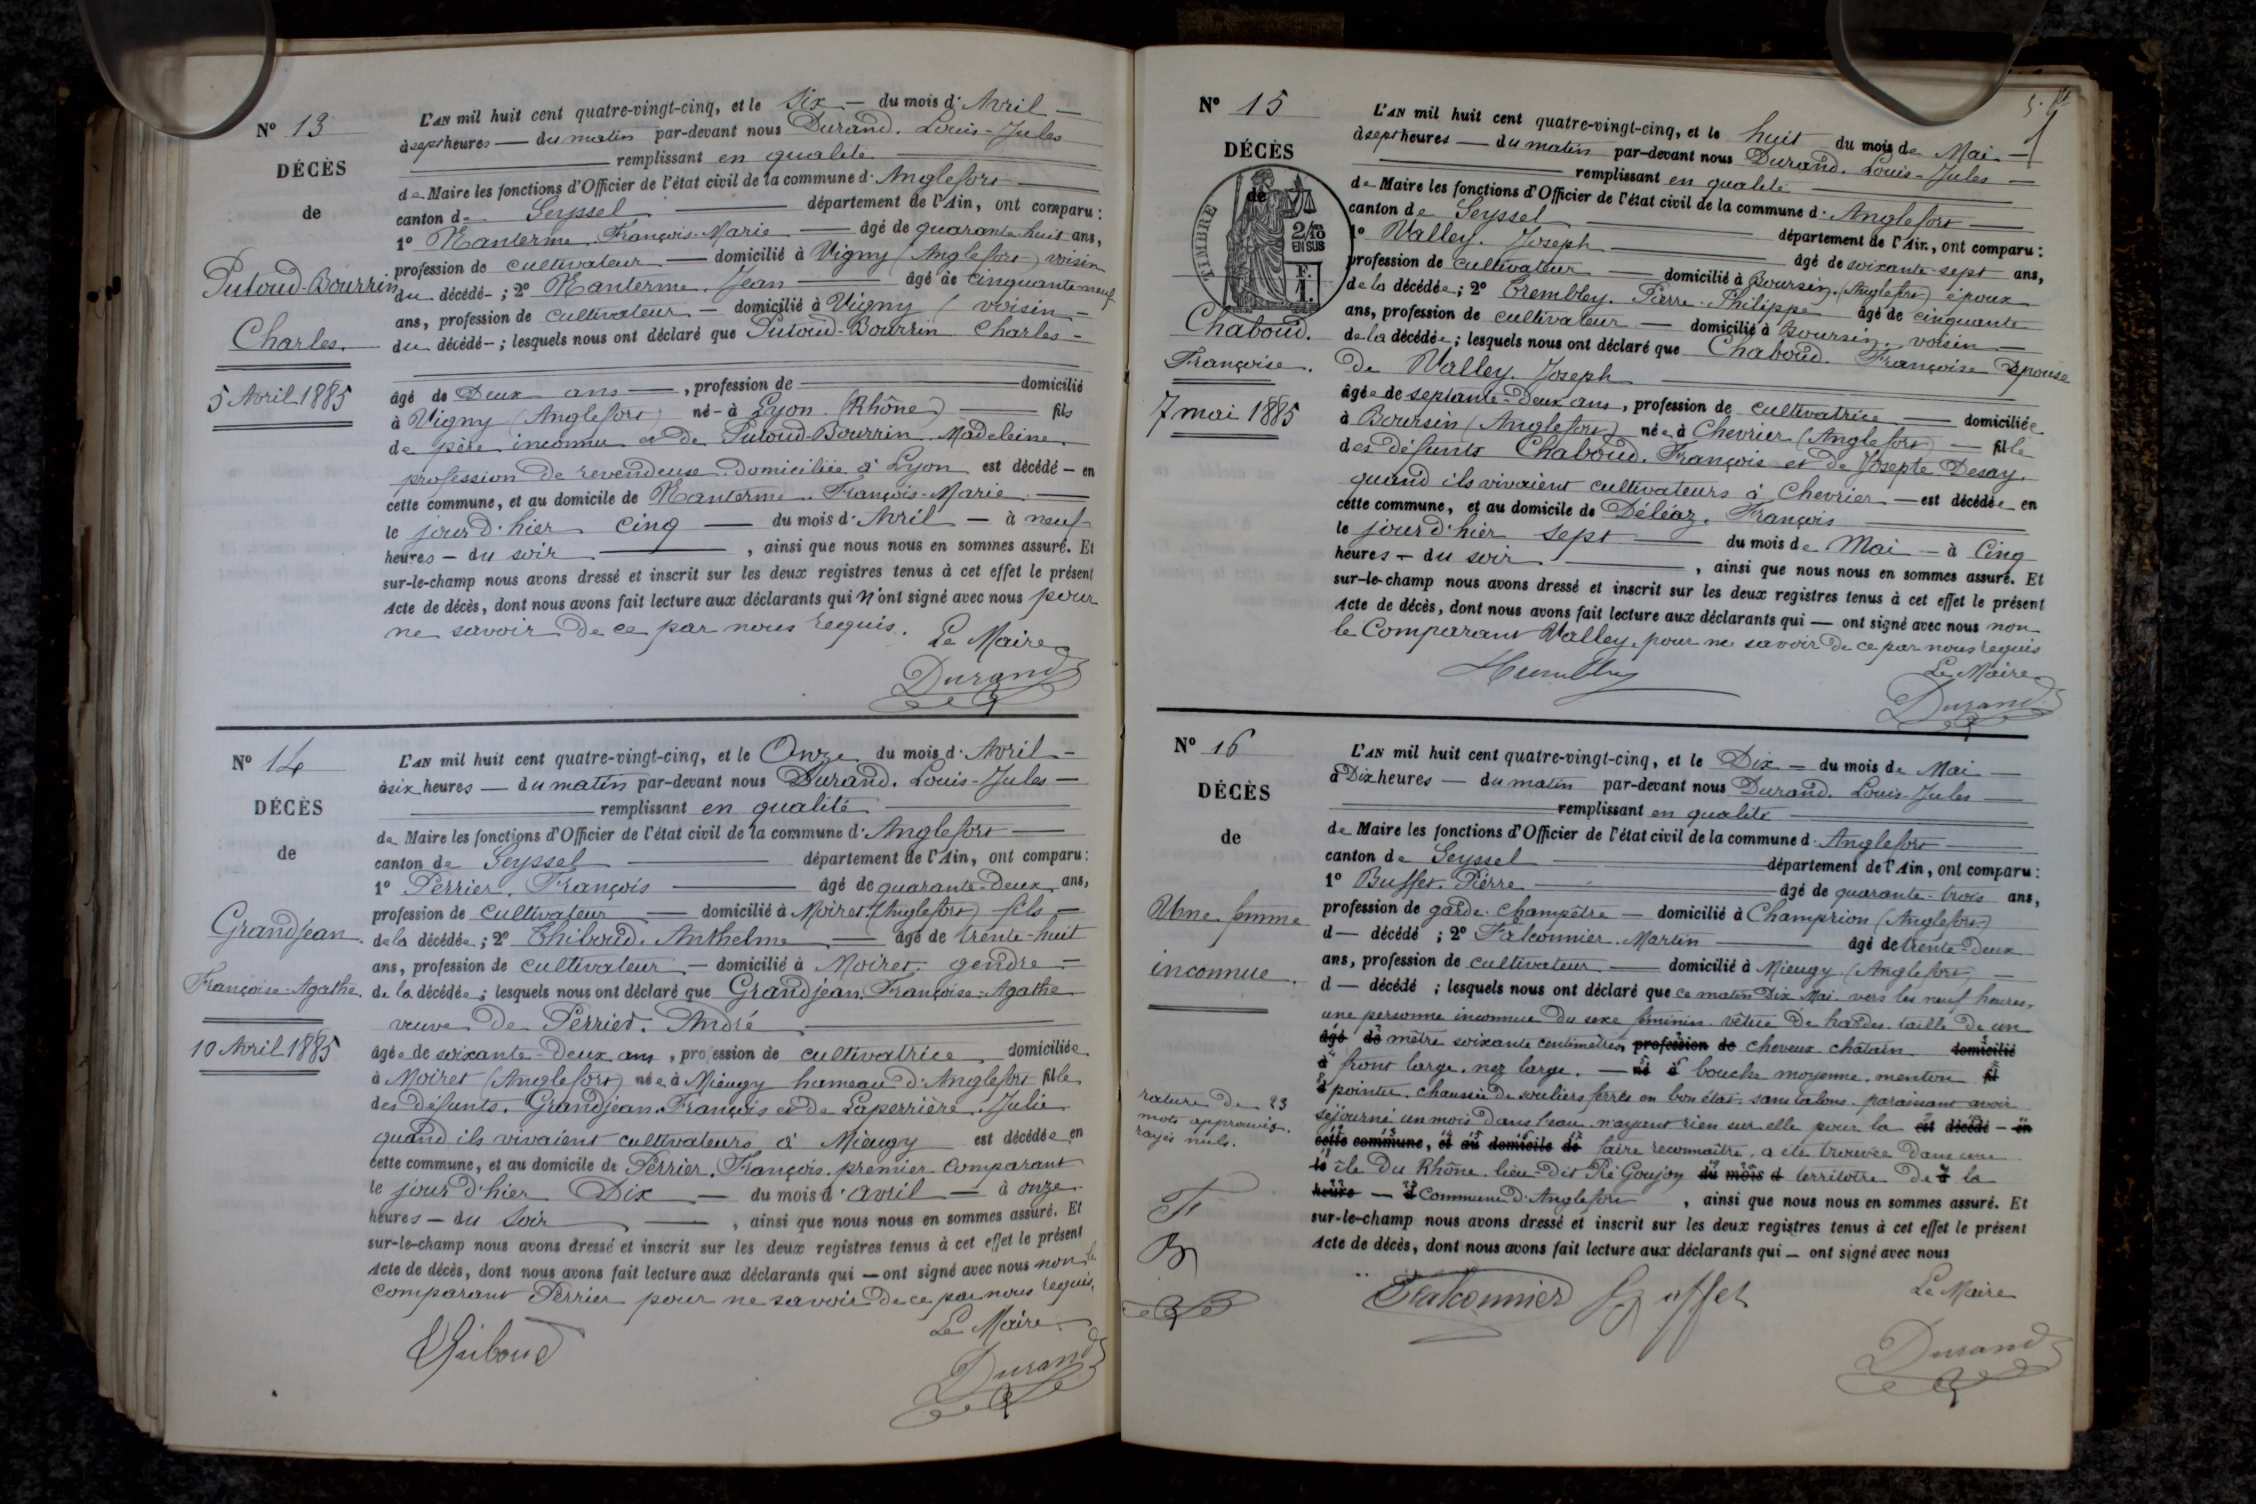 Nº 13
DÉCÈS
de
Putoud-Bourrin
Charles.
5 Avril 1885
L'AN mil huit cent quatre-vingt-cinq, et le Six — du mois d'Avril —
à sept heures — du matin par-devant nous Durand. Louis-Jules
remplissant en qualité
de Maire les fonctions d'Officier de l'état civil de la commune d'Anglefort
canton de Seyssel département de l'Ain, ont comparu :
1º François-Marie — âgé de quarante-huit ans,
profession de cultivateur — domicilié à Vigny (Anglefort) voisin
du décédé- ; 2º Jean — âgé de cinquante neuf
ans, profession de cultivateur — domicilié à Vigny ( voisin -
du décédé- ; lesquels nous ont déclaré que Putoud-Bourrin Charles -
âgé de Deux ans —, profession de — domicilié
à Vigny (Anglefort) né- à Lyon (Rhône) — fils
de père inconnu et de Putoud-Bourrin Madeleine.
profession de revendeuse domiciliée à Lyon est décédé - en
cette commune, et au domicile de François-Marie.
le jour d'hier cinq — du mois d'Avril — à neuf
heures - du soir —, ainsi que nous nous en sommes assuré. Et
sur-le-champ nous avons dressé et inscrit sur les deux registres tenus à cet effet le présent
Acte de décès, dont nous avons fait lecture aux déclarants qui n'ont signé avec nous pour
ne savoir de ce par nous requis.
Le Maire
Durand
Nº 14
DÉCÈS
de
Grandjean.
Françoise-Agathe.
10 Avril 1885
L'AN mil huit cent quatre-vingt-cinq, et le Onze du mois d'Avril -
à six heures — du matin par-devant nous Durand. Louis-Jules —
remplissant en qualité
de Maire les fonctions d'Officier de l'état civil de la commune d'Anglefort —
canton de Seyssel — département de l'Ain, ont comparu :
1º Perrier. François — âgé de quarante-Deux ans,
profession de cultivateur — domicilié à Moiret (Anglefort) fils —
de la décédée ; 2º Thiboud. Anthelme — âgé de trente-huit
ans, profession de cultivateur — domicilié à Moiret gendre -
de la décédée ; lesquels nous ont déclaré que Grandjean. Françoise-Agathe
veuve de Perrier. André
âgée de soixante-Deux ans, profession de cultivatrice domiciliée
à Moiret (Anglefort) née à Mieugy hameau d'Anglefort fille
des défunts. Grandjean. François et de Laperrière. Julie
quand ils vivaient cultivateurs à Mieugy est décédée en
cette commune, et au domicile de Perrier. François. premier comparant
le jour d'hier Dix — du mois d'avril — à onze
heures - du soir —, ainsi que nous nous en sommes assuré. Et
sur-le-champ nous avons dressé et inscrit sur les deux registres tenus à cet effet le présent
Acte de décès, dont nous avons fait lecture aux déclarants qui — ont signé avec nous non le
comparant Perrier pour ne savoir de ce par nous requis.
Le Maire
Thiboud
Durand
5.
Nº 15
DÉCÈS
de
TIMBRE
2/10
EN SUS
F.
1.
Chaboud.
Françoise.
7 mai 1885
L'AN mil huit cent quatre-vingt-cinq, et le huit du mois de Mai —
à sept heures — du matin par-devant nous Durand. Louis-Jules —
remplissant en qualité
de Maire les fonctions d'Officier de l'état civil de la commune d'Anglefort —
canton de Seyssel département de l'Ain, ont comparu :
1º Valley. Joseph — âgé de soixante-sept ans,
profession de cultivateur — domicilié à Boursin. (Anglefort) époux
de la décédée ; 2º Trembley. Pierre-Philippe âgé de cinquante
ans, profession de cultivateur — domicilié à Boursin. voisin —
de la décédée ; lesquels nous ont déclaré que Chaboud. Françoise Epouse
de Valley. Joseph
âgée de septante-Deux ans, profession de cultivatrice — domiciliée
à Boursin (Anglefort) née à Chevrier (Anglefort) — fille
des défunts Chaboud. François et de Josepte Desay.
quand ils vivaient cultivateurs à Chevrier — est décédée en
cette commune, et au domicile de Déléaz. François
le jour d'hier sept — du mois de Mai — à Cinq
heures - du soir —, ainsi que nous nous en sommes assuré. Et
sur-le-champ nous avons dressé et inscrit sur les deux registres tenus à cet effet le présent
Acte de décès, dont nous avons fait lecture aux déclarants qui — ont signé avec nous non
le Comparant Valley. pour ne savoir de ce par nous requis
Le Maire
Durand
Nº 16
DÉCÈS
de
Une femme
inconnue.
rature de 23
mots approuvée.
rayés nuls.
L'AN mil huit cent quatre-vingt-cinq, et le Dix — du mois de Mai —
à Dix heures — du matin par-devant nous Durand. Louis-Jules
remplissant en qualité
de Maire les fonctions d'Officier de l'état civil de la commune d'Anglefort
canton de Seyssel département de l'Ain, ont comparu :
1º Buffet. Pierre — âgé de quarante-trois ans,
profession de garde-champêtre — domicilié à Champrion (Anglefort)
d — décédé ; 2º Falconnier. Martin — âgé de trente-Deux
ans, profession de cultivateur — domicilié à Mieugy (Anglefort) —
d — décédé ; lesquels nous ont déclaré que ce matin Dix Mai vers les neuf heures,
une personne inconnue du sexe féminin. vêtue de hardes. taille de un
âgé de mètre soixante centimètres, profession de cheveux châtain domicilié
à front large. nez large. — né à bouche moyenne. menton fil
d pointu. chaussée de souliers ferrés en bon état. sans talons. paraissant avoir
séjourné un mois dans l'eau. n'ayant rien sur elle pour la est décédé - en
cette commune, et au domicile de faire reconnaître. a été trouvée dans une
le île du Rhône. lieu-dit Ré Goujon du mois d territoire de à la
heure — d Commune d'Anglefort, ainsi que nous nous en sommes assuré. Et
sur-le-champ nous avons dressé et inscrit sur les deux registres tenus à cet effet le présent
Acte de décès, dont nous avons fait lecture aux déclarants qui — ont signé avec nous
Le Maire
Falconnier Buffet
Durand